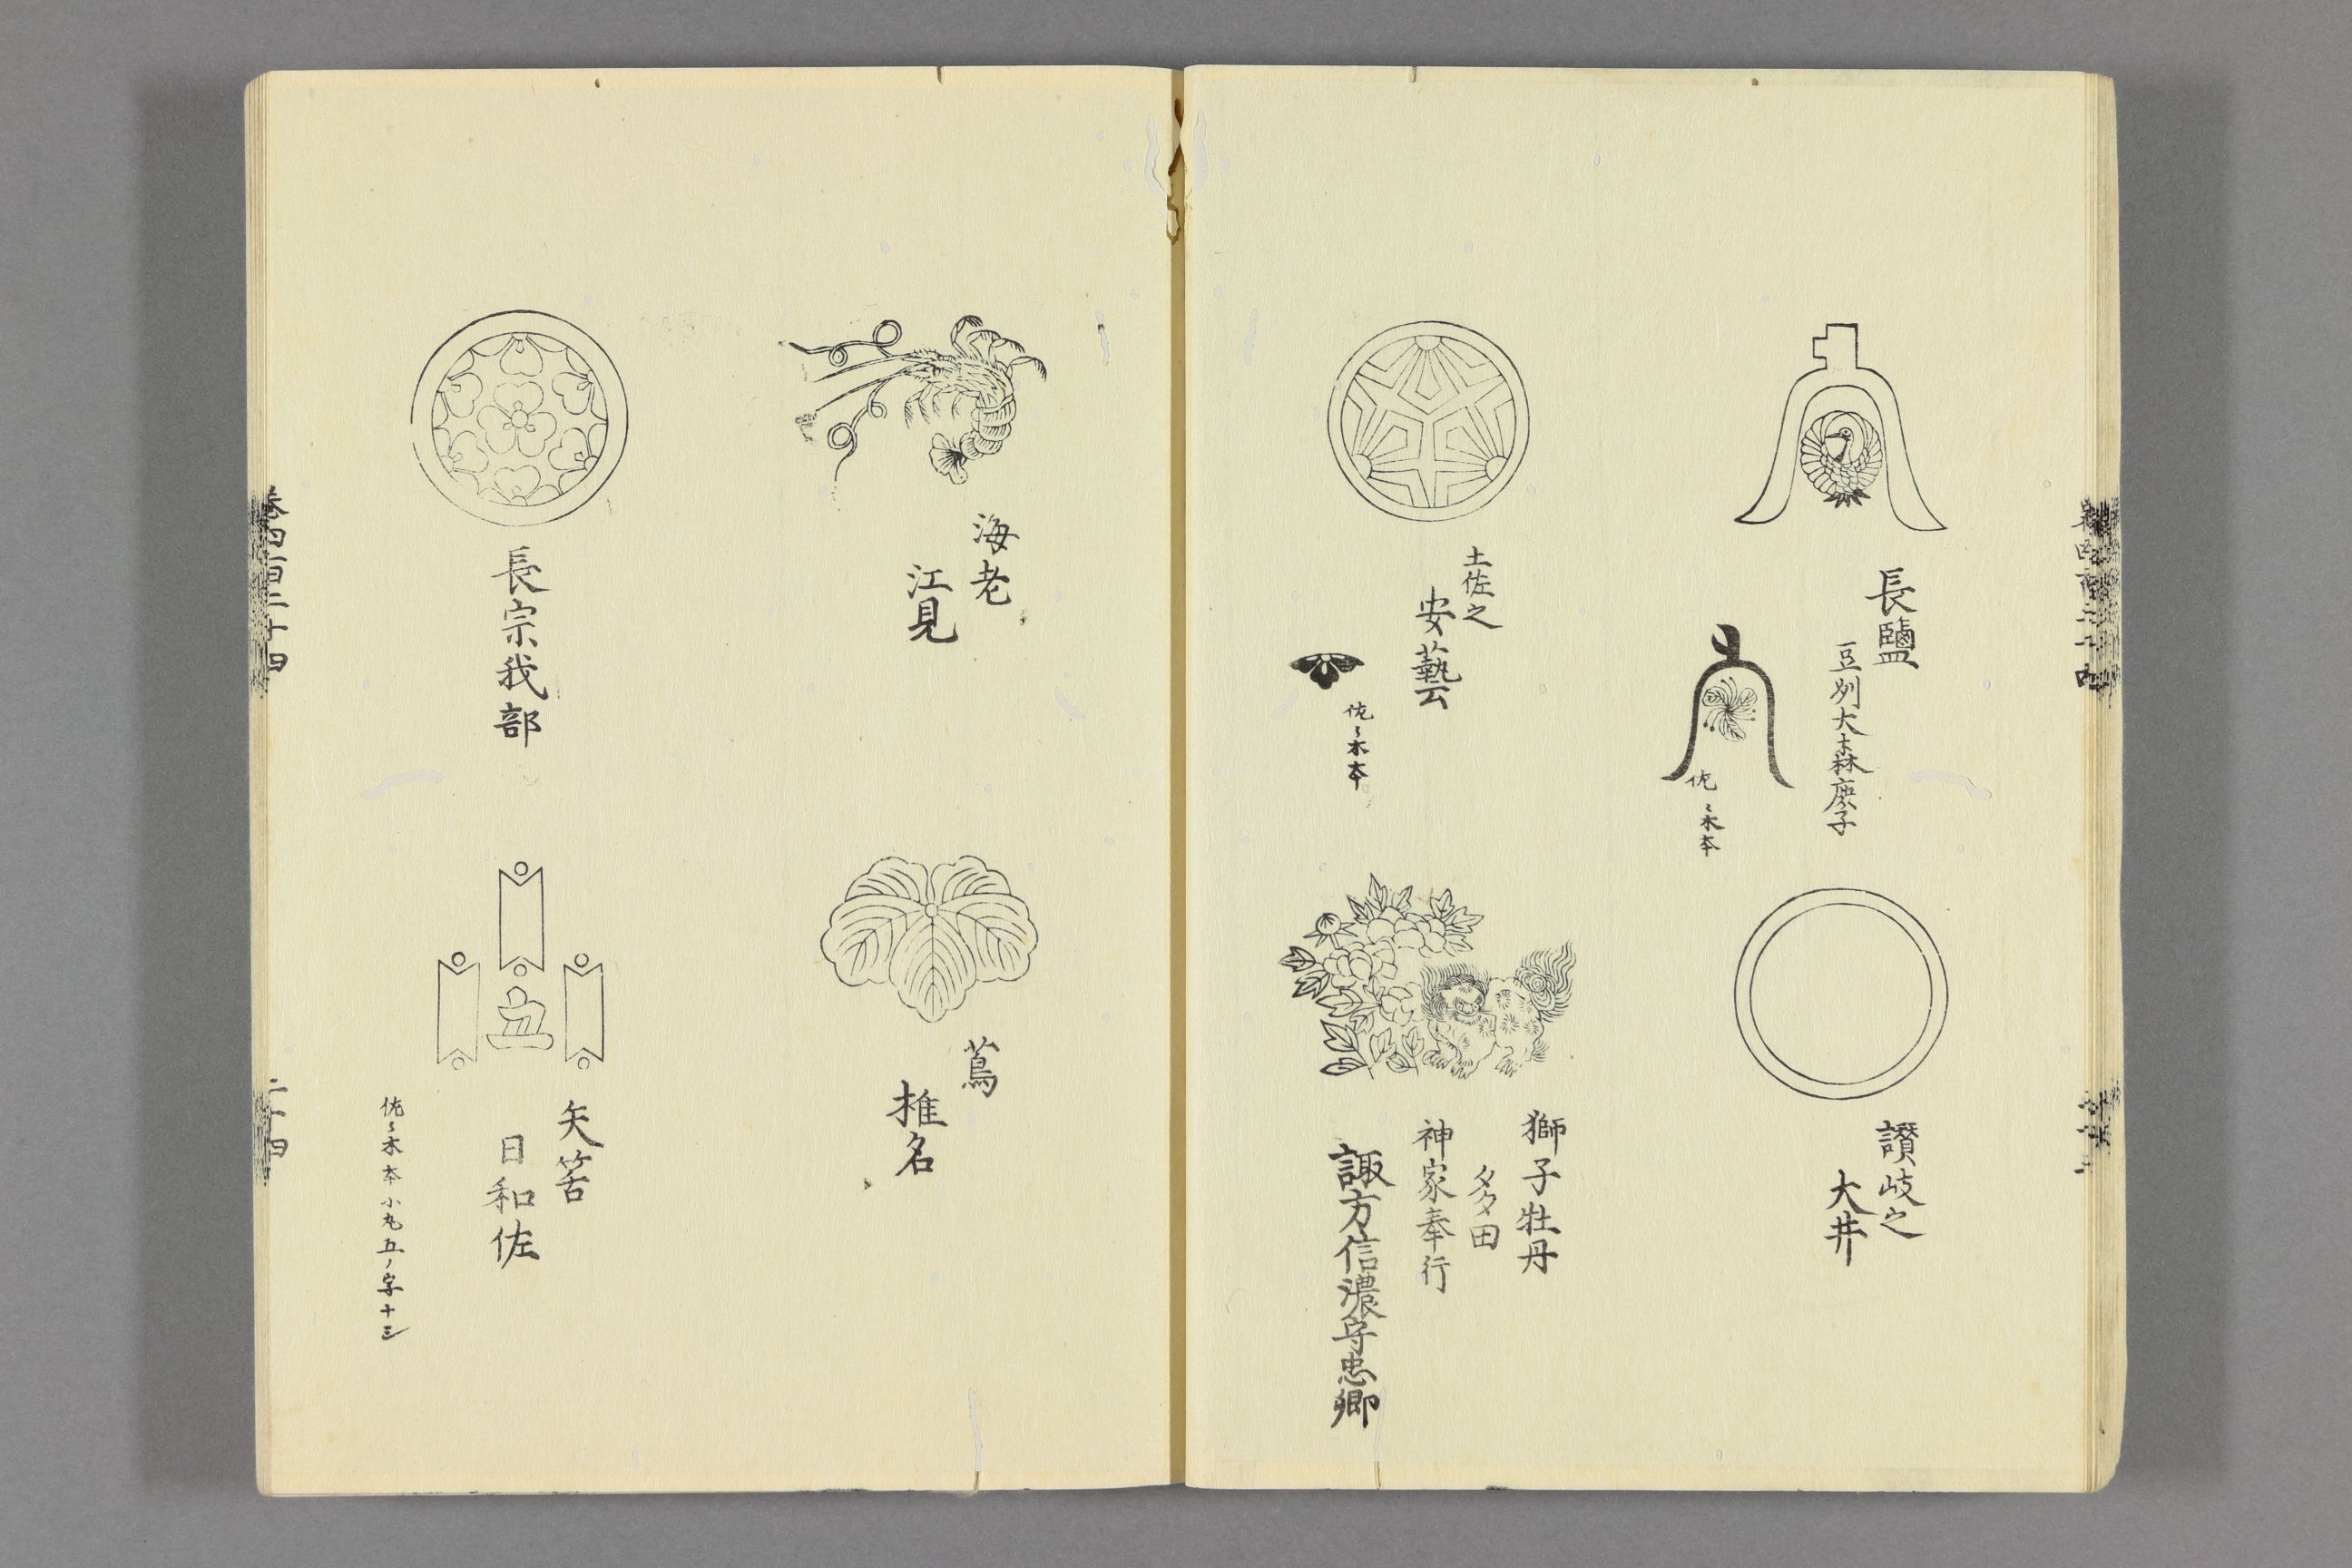 長鹽
豆州大森庶子
佐〻木本
讃岐之
大井
土佐之
安藝
佐〻木本
獅子牡丹
多田
神家奉行
諏方信濃守忠卿
海老
江見
蔦
椎名
長宗我部
矢筈
日和佐
佐〻木本小丸五ノ字十三
卷四百二十四
二十四